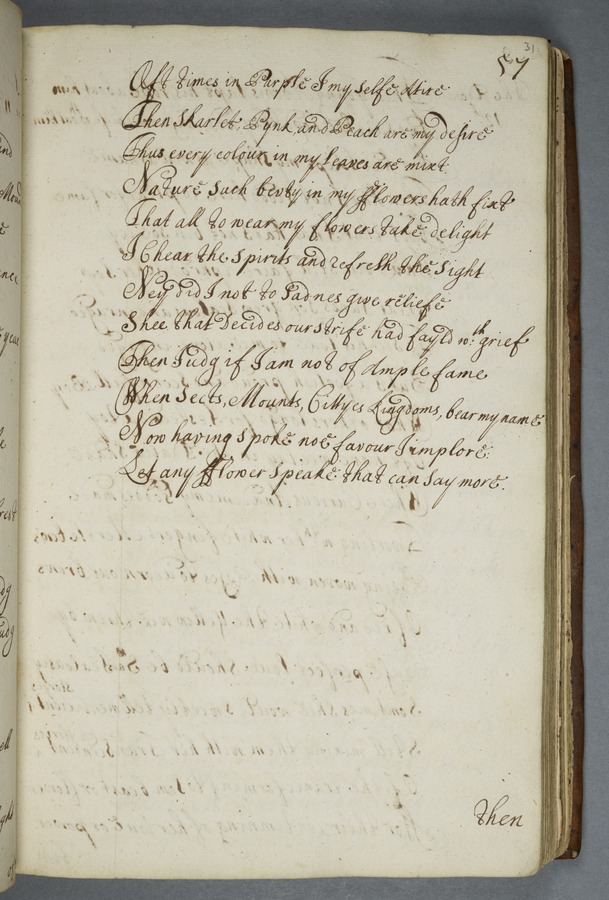 31
57
Oft times in Purple I my selfe Atire
Then Skarlet, Pynk, and Peach are my desire
Thus every colour in my leaves are mixt
Nature such bevty in my fflowers hath fixt
That all to wear my flowers take delight
I Chear the spirits and refresh the sight
Ney did I not to Sadnes give reliefe
Shee that Decides our strife had fayld wth grief
Then Judg if I am not of Ample fame
When Sects, Mounts, Cittyes Kingdoms, bear my name
Now having spoke noe favour I implore
Let any fflower speake that can say more.
then